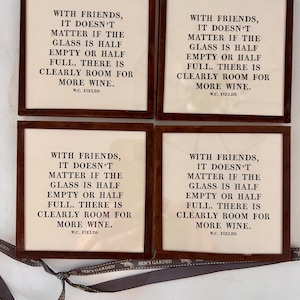 WITH FRIENDS,
IT DOESN'T
MATTER IF THE
GLASS IS HALF
EMPTY OR HALF
FULL. THERE IS
CLEARLY ROOM FOR
MORE WINE.
W.C. FIELDS
WITH FRIENDS,
IT DOESN'T
MATTER IF THE
GLASS IS HALF
EMPTY OR HALF
FULL. THERE IS
CLEARLY ROOM FOR
MORE WINE.
W.C. FIELDS
WITH FRIENDS,
IT DOESN'T
MATTER IF THE
GLASS IS HALF
EMPTY OR HALF
FULL. THERE IS
CLEARLY ROOM FOR
MORE WINE.
W.C. FIELDS
WITH FRIENDS,
IT DOESN'T
MATTER IF THE
GLASS IS HALF
EMPTY OR HALF
FULL. THERE IS
CLEARLY ROOM FOR
MORE WINE.
W.C. FIELDS
BEN'S GARDEN